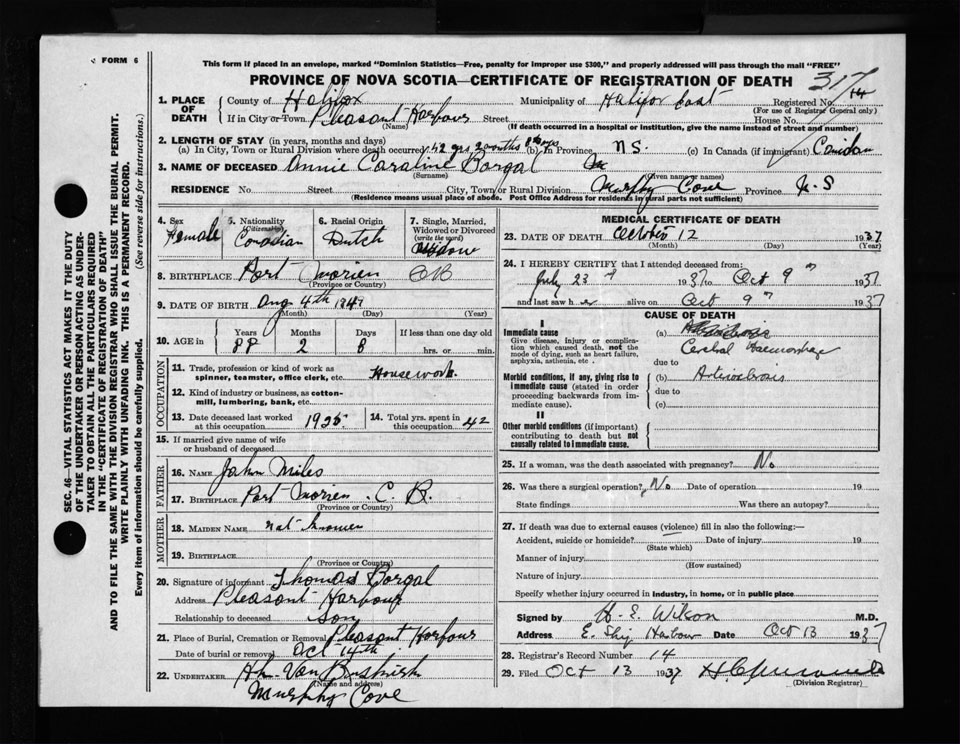 FORM 6
This form if placed in an envelope, marked "Dominion Statistics—Free, penalty for improper use $300," and properly addressed will pass through the mail "FREE"
PROVINCE OF NOVA SCOTIA—CERTIFICATE OF REGISTRATION OF DEATH
317
1. PLACE OF DEATH
County of Halifax Municipality of Halifax East Registered No. 14
(For use of Registrar General only)
If in City or Town Pleasant Harbour Street House No.
(Name) (If death occurred in a hospital or institution, give the name instead of street and number)
2. LENGTH OF STAY (in years, months and days)
(a) In City, Town or Rural Division where death occurred 42 yrs 2 months 8 days (b) In Province N S. (c) In Canada (if immigrant) Canadian
3. NAME OF DECEASED Annie Caroline Borgal
(Surname) (Given name or names)
RESIDENCE No. Street City, Town or Rural Division Murphy Cove Province N. S
(Residence means usual place of abode. Post Office Address for residents in rural parts not sufficient)
4. Sex Female
5. Nationality (Citizenship) Canadian
6. Racial Origin Dutch
7. Single, Married, Widowed or Divorced (write the word) Widow
8. BIRTHPLACE Port Morien CB
(Province or Country)
9. DATE OF BIRTH Aug 4th 1847
(Month) (Day) (Year)
10. AGE in Years Months Days If less than one day old
88 2 8 hrs. or min.
OCCUPATION
11. Trade, profession or kind of work as spinner, teamster, office clerk, etc. Housework.
12. Kind of industry or business, as cotton-mill, lumbering, bank, etc.
13. Date deceased last worked at this occupation 1925
14. Total yrs. spent in this occupation 42
15. If married give name of wife or husband of deceased
FATHER
16. NAME John Miles
17. BIRTHPLACE Port Morien . C. B.
(Province or Country)
MOTHER
18. MAIDEN NAME not known
19. BIRTHPLACE
(Province or Country)
20. Signature of informant Thomas Borgal
Address Pleasant Harbour
Relationship to deceased son
21. Place of Burial, Cremation or Removal Pleasant Harbour
Date of burial or removal Oct 14th
22. UNDERTAKER Van Buskirk
(Name and address)
Murphy Cove
MEDICAL CERTIFICATE OF DEATH
23. DATE OF DEATH October 12 1937
(Month) (Day) (Year)
24. I HEREBY CERTIFY that I attended deceased from:
July 23rd 1937 to Oct 9th 1937
and last saw her alive on Oct 9th 1937
CAUSE OF DEATH
I
Immediate cause
Give disease, injury or complication which caused death, not the mode of dying, such as heart failure, asphyxia, asthenia, etc.
(a) Cerebral Haemorrhage
due to
Morbid conditions, if any, giving rise to immediate cause (stated in order proceeding backwards from immediate cause).
(b) Arteriosclerosis
due to
(c)
II
Other morbid conditions (if important) contributing to death but not causally related to immediate cause.
25. If a woman, was the death associated with pregnancy? No
26. Was there a surgical operation? No Date of operation 19
State findings Was there an autopsy?
27. If death was due to external causes (violence) fill in also the following:—
Accident, suicide or homicide? Date of injury 19
(State which)
Manner of injury
(How sustained)
Nature of injury
Specify whether injury occurred in industry, in home, or in public place
Signed by H. E. Wilson M.D.
Address E. Ship Harbour Date Oct 13 1937
28. Registrar's Record Number 14
29. Filed Oct 13 1937
(Division Registrar)
SEC. 46—VITAL STATISTICS ACT MAKES IT THE DUTY OF THE UNDERTAKER OR PERSON ACTING AS UNDERTAKER TO OBTAIN ALL THE PARTICULARS REQUIRED IN THE "CERTIFICATE OF REGISTRATION OF DEATH" AND TO FILE THE SAME WITH THE DIVISION REGISTRAR WHO SHALL ISSUE THE BURIAL PERMIT.
WRITE PLAINLY WITH UNFADING INK. THIS IS A PERMANENT RECORD.
Every item of information should be carefully supplied. (See reverse side for instructions.)